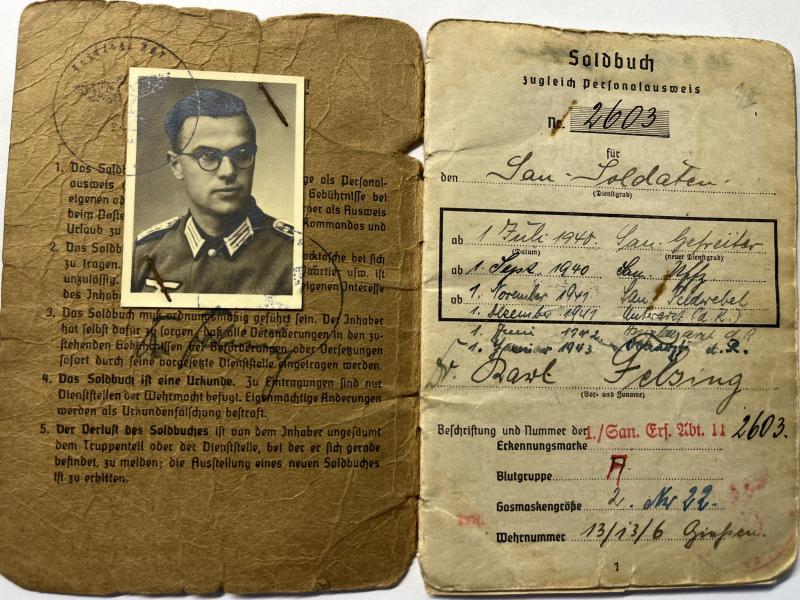 1. Das Soldb
ge als Personal-
ausweis
Gebührnisse bei
eigenen od
rner als Ausweis
beim Poste
Kommandos und
Urlaub zu
2. Das Soldb
cktasche bei sich
zu tragen.
uartier usw. ist
unzulässig.
eigenen Interesse
des Inhab
3. Das Soldbuch muß ordnungsmäßig geführt sein. Der Inhaber
hat selbst dafür zu sorgen, daß alle Veränderungen in den zu-
stehenden Gebührnissen bei Beförderungen oder Versetzungen
sofort durch seine vorgesetzte Dienststelle eingetragen werden.
4. Das Soldbuch ist eine Urkunde. Zu Eintragungen sind nur
Dienststellen der Wehrmacht befugt. Eigenmächtige Änderungen
werden als Urkundenfälschung bestraft.
5. Der Verlust des Soldbuches ist von dem Inhaber ungesäumt
dem Truppenteil oder der Dienststelle, bei der er sich gerade
befindet, zu melden; die Ausstellung eines neuen Soldbuches
ist zu erbitten.
Soldbuch
zugleich Personalausweis
Nr. 2603
für
den San.-Soldaten.
(Dienstgrad)
ab 1 Juli 1940. San. Gefreiter
(Datum) (neuer Dienstgrad)
ab 1. Sept. 1940 San. Uffz
ab 1. November 1941 San. Feldwebel
1. Dezember 1941 Unterarzt (d.R.)
1. Juni 1942 d.R
1. Januar 1943 d.R.
Dr Karl Felsing
(Vor- und Zuname)
Beschriftung und Nummer der 1./San. Ers. Abt. 11 2603.
Erkennungsmarke
Blutgruppe A
Gasmaskengröße 2. Nr 22.
Wehrnummer 13/13/6 Gießen.
1